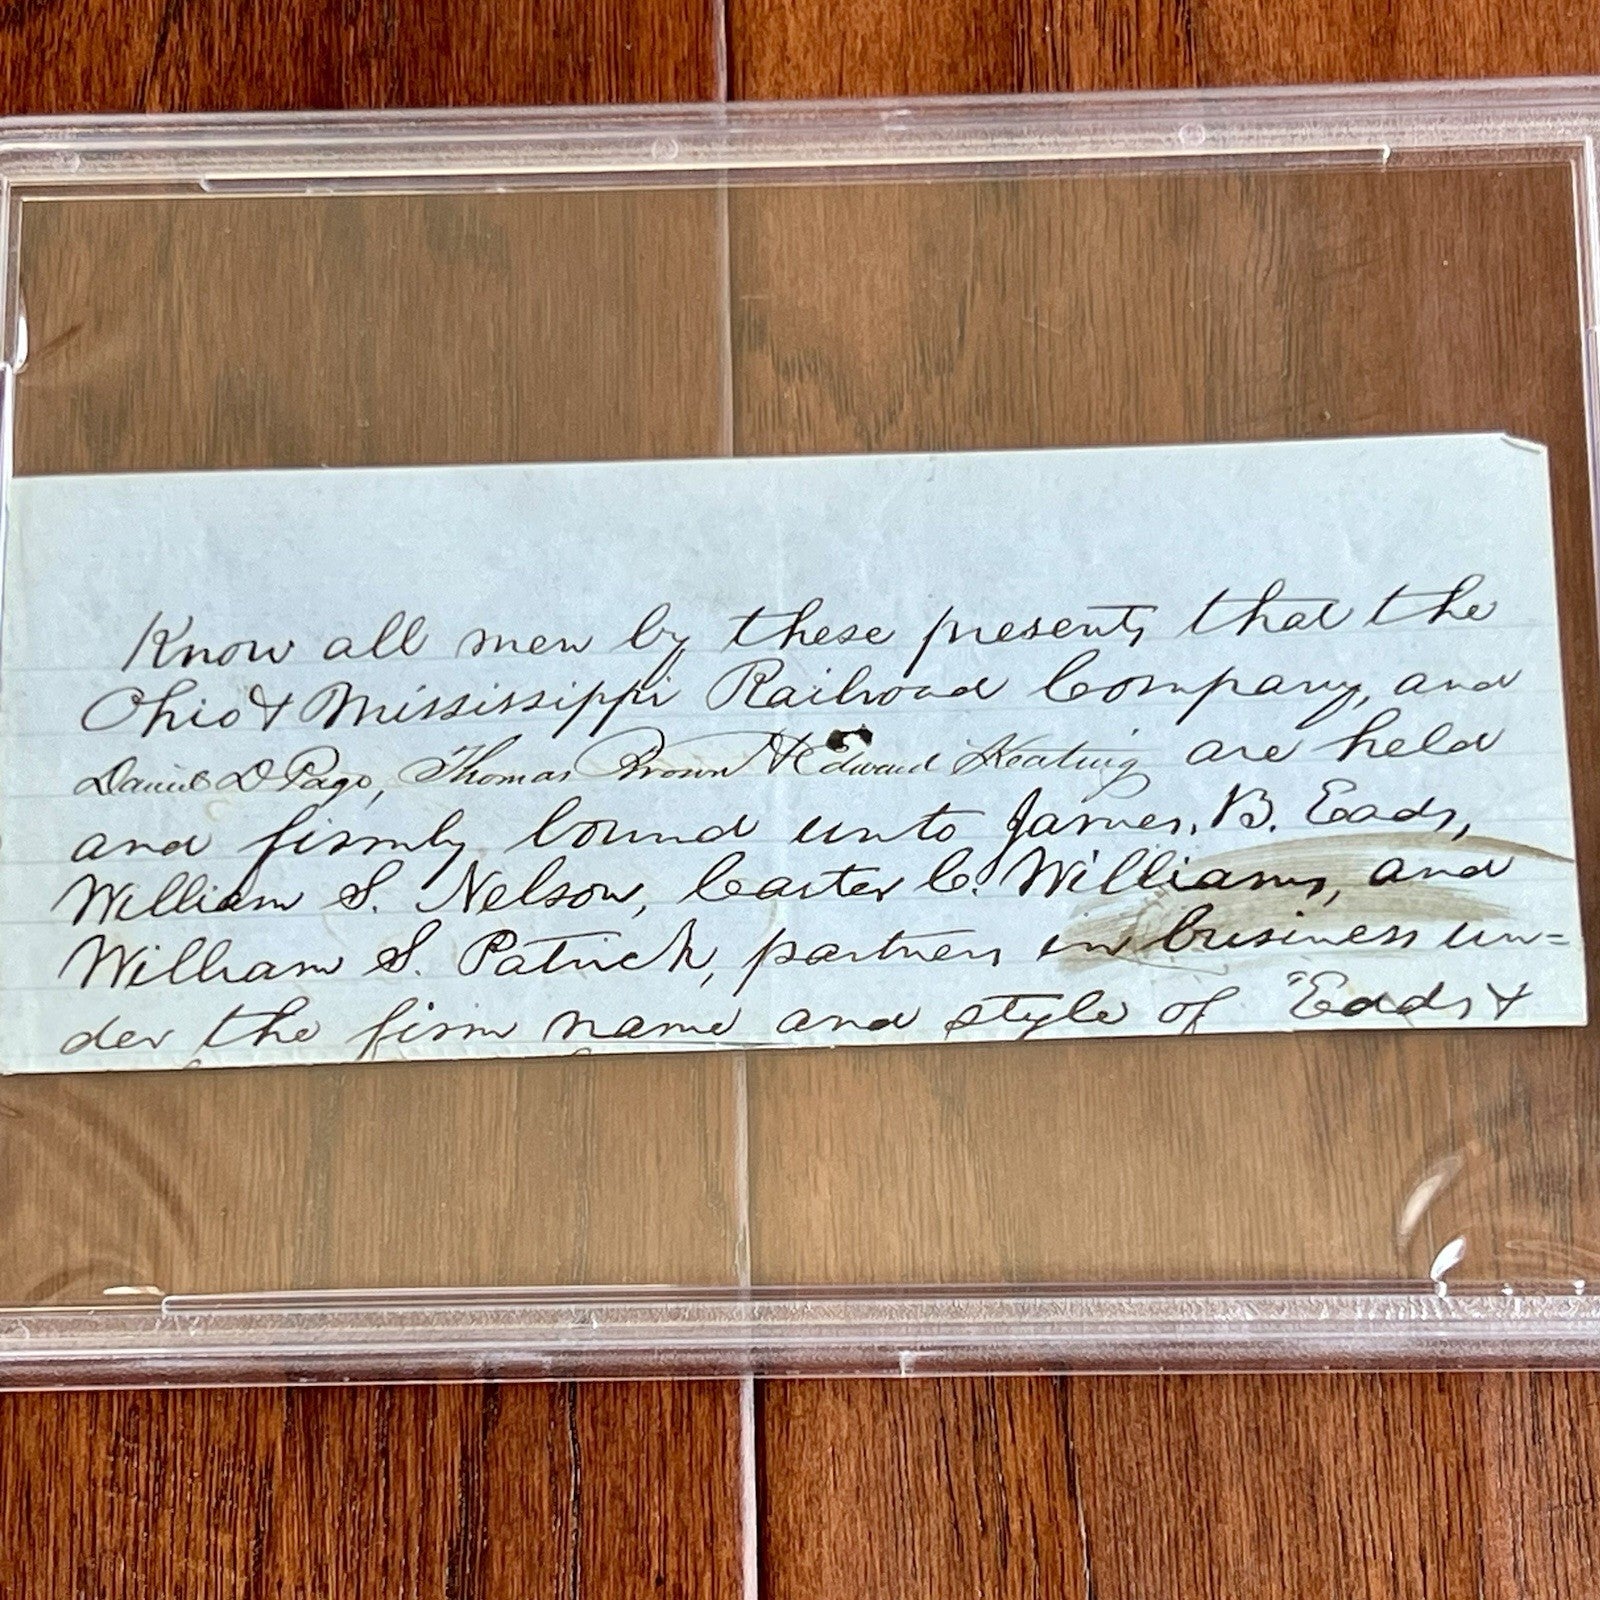 Know all men by these presents, that the
Ohio & Mississippi Railroad Company, and
Daniel D Page, Thomas Brown & Edward Keating are held
and firmly bound unto James. B. Eads,
William S. Nelson, Carter C. Williams, and
William S. Patrick, partners in business un=
der the firm name and style of "Eads &